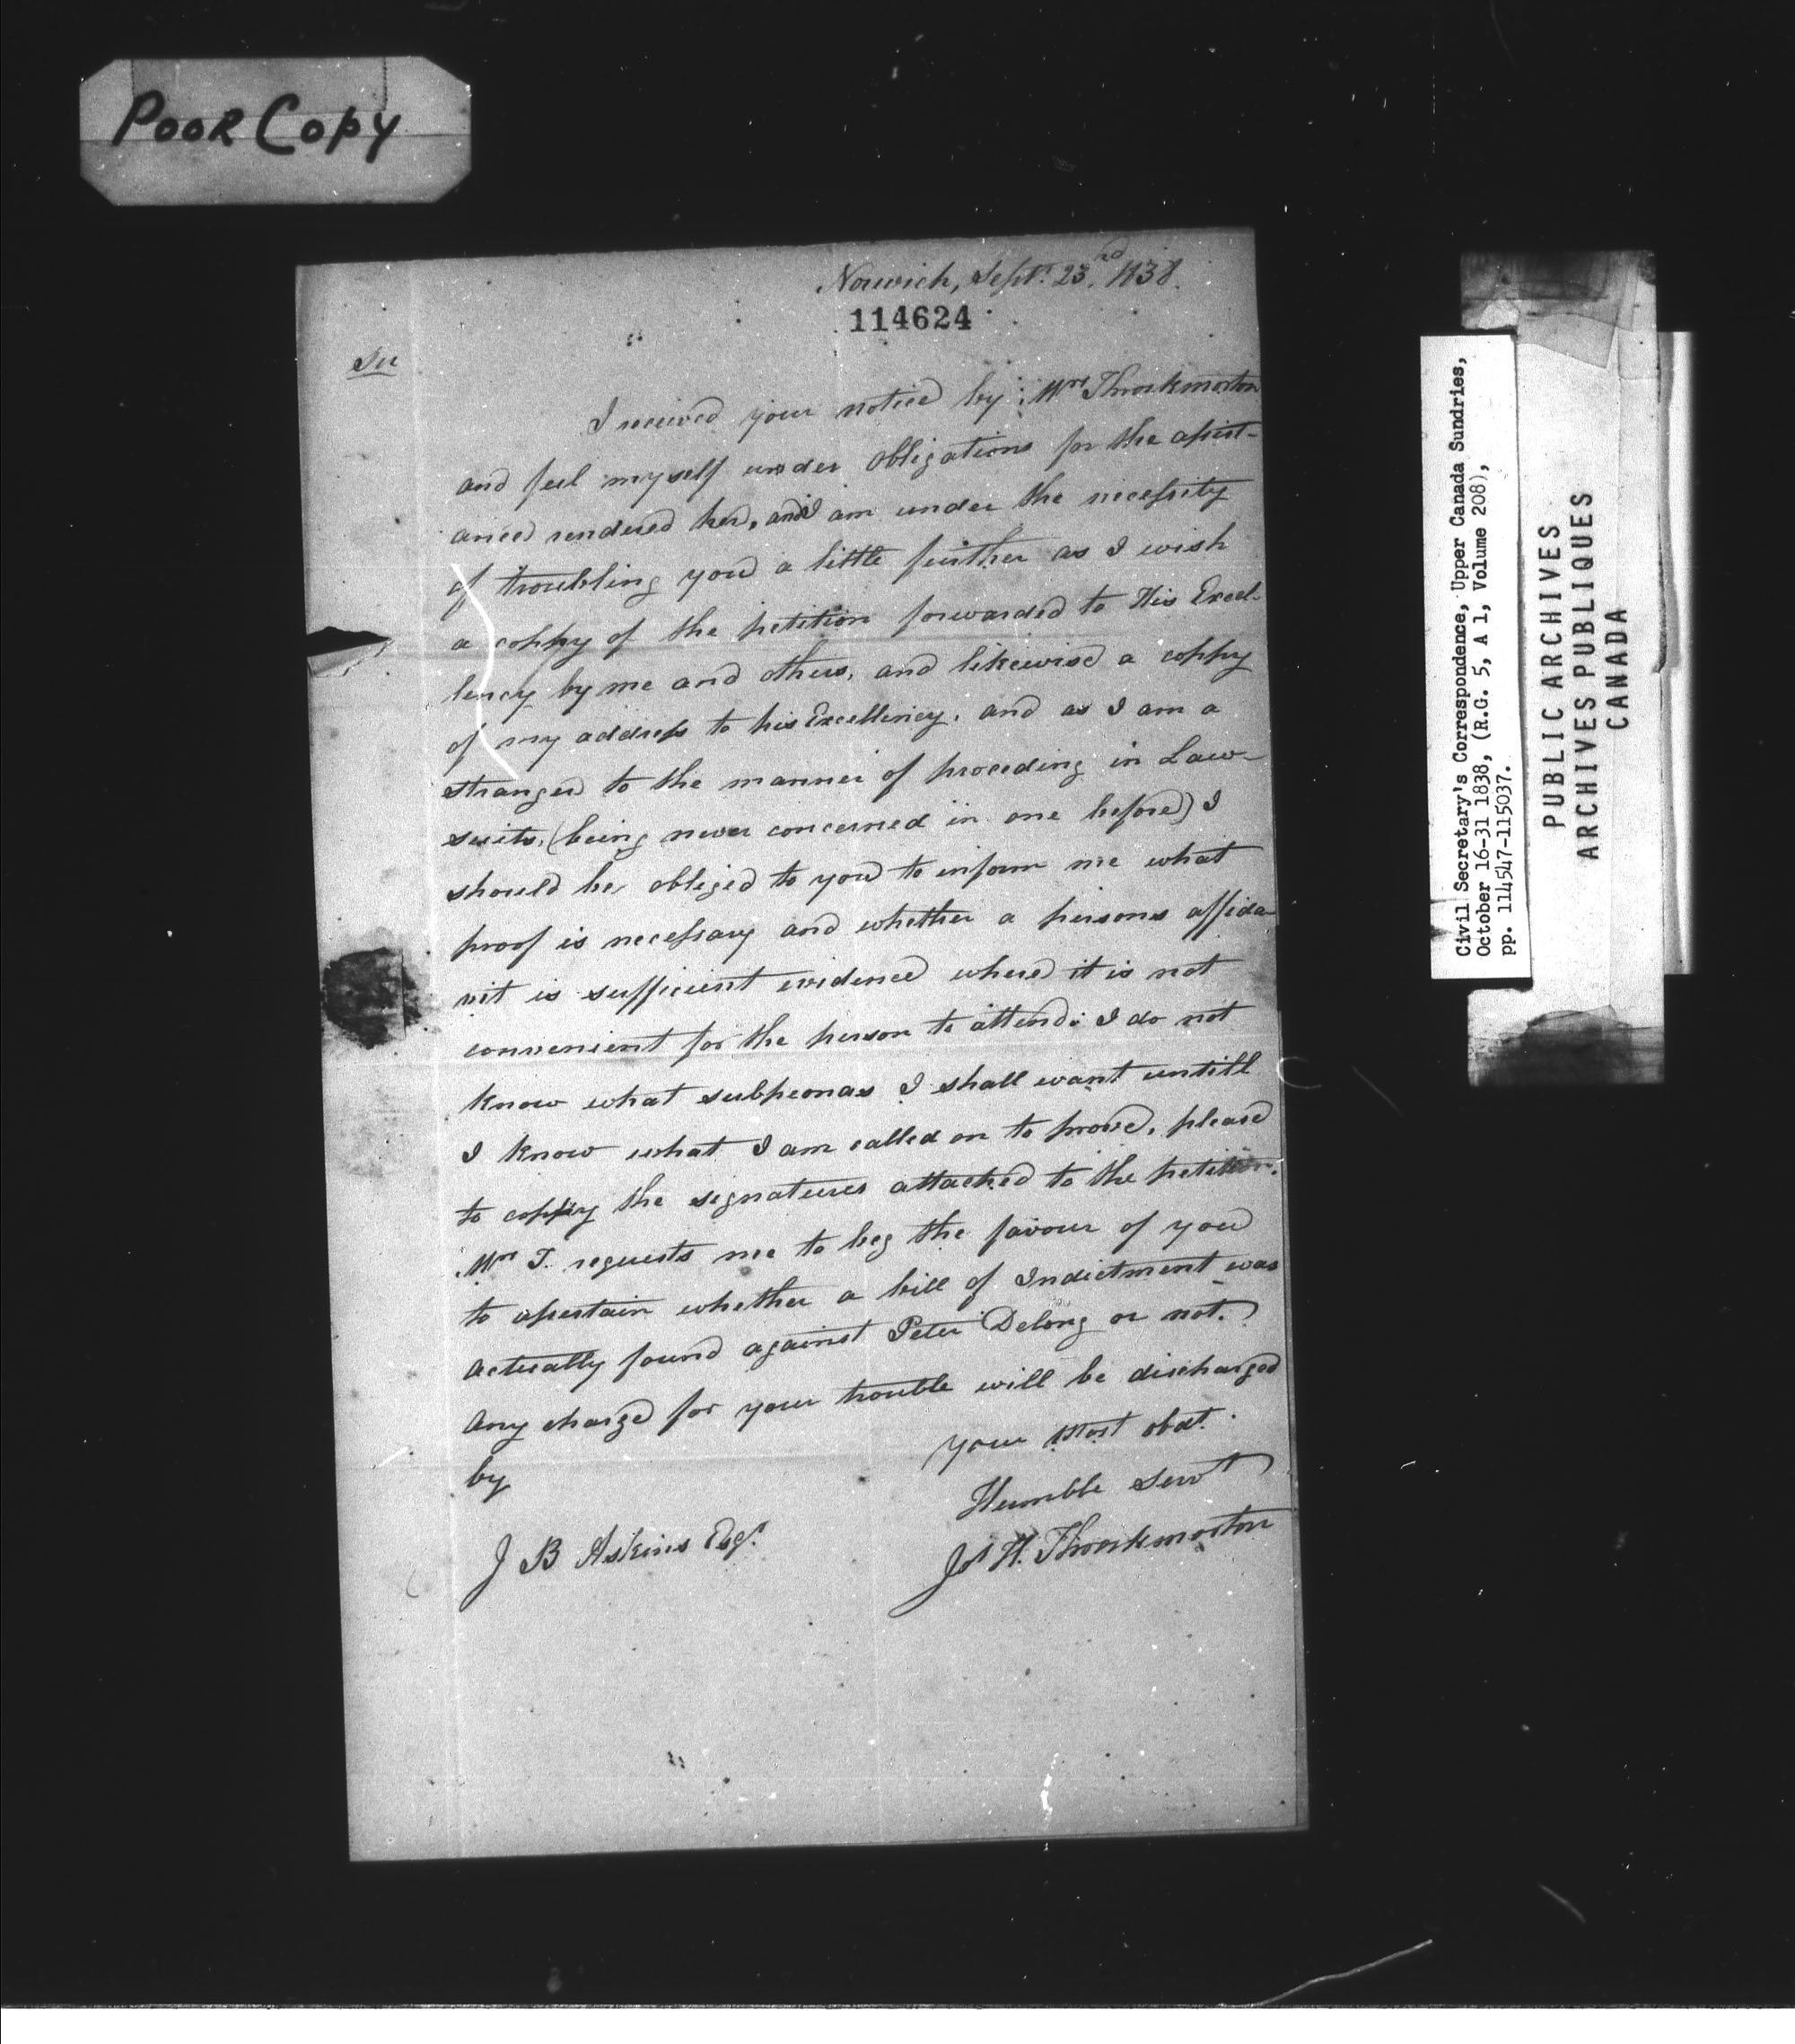 Poor Copy
Norwich, Sept. 23rd 1838.
114624
Sir
I received your notice by Mrs Throckmorton
and feel myself under obligations for the assist-
ance rendered her, and I am under the necessity
of troubling you a little further as I wish
a coppy of the petition forwarded to His Excel-
lency by me and others, and likewise a coppy
of my address to his Excellency, and as I am a
stranger to the manner of proceding in Law-
suits, (being never concerned in one before) I
should be obliged to you to inform me what
proof is necessary and whether a persons affida-
vit is sufficient evidence where it is not
convenient for the person to attend; I do not
know what subpeonas I shall want untill
I know what I am called on to prove, please
to coppy the signatures attached to the petition.
Mrs T. requests me to beg the favour of you
to assertain whether a bill of Indictment was
actually found against Peter Delong or not.
Any charge for your trouble will be discharged
by
your most obdt.
Humble Servt
H. Throckmorton
J B Askins Esqr.
Civil Secretary's Correspondence, Upper Canada Sundries,
October 16-31 1838, (R.G. 5, A 1, Volume 208),
pp. 114547-115037.
PUBLIC ARCHIVES
ARCHIVES PUBLIQUES
CANADA